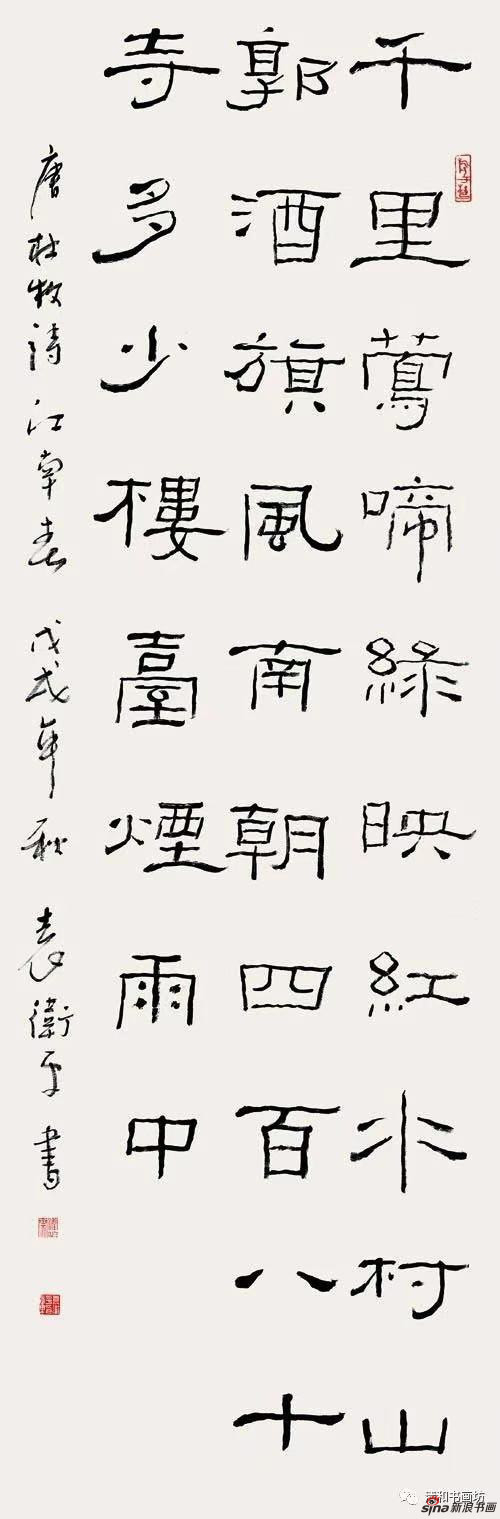 千里鶯啼綠映紅水村山
郭酒旗風南朝四百八十
寺多少樓臺煙雨中
唐杜牧詩江南春 戊戌年秋 袁衛平書
和书画坊
sina新浪书画